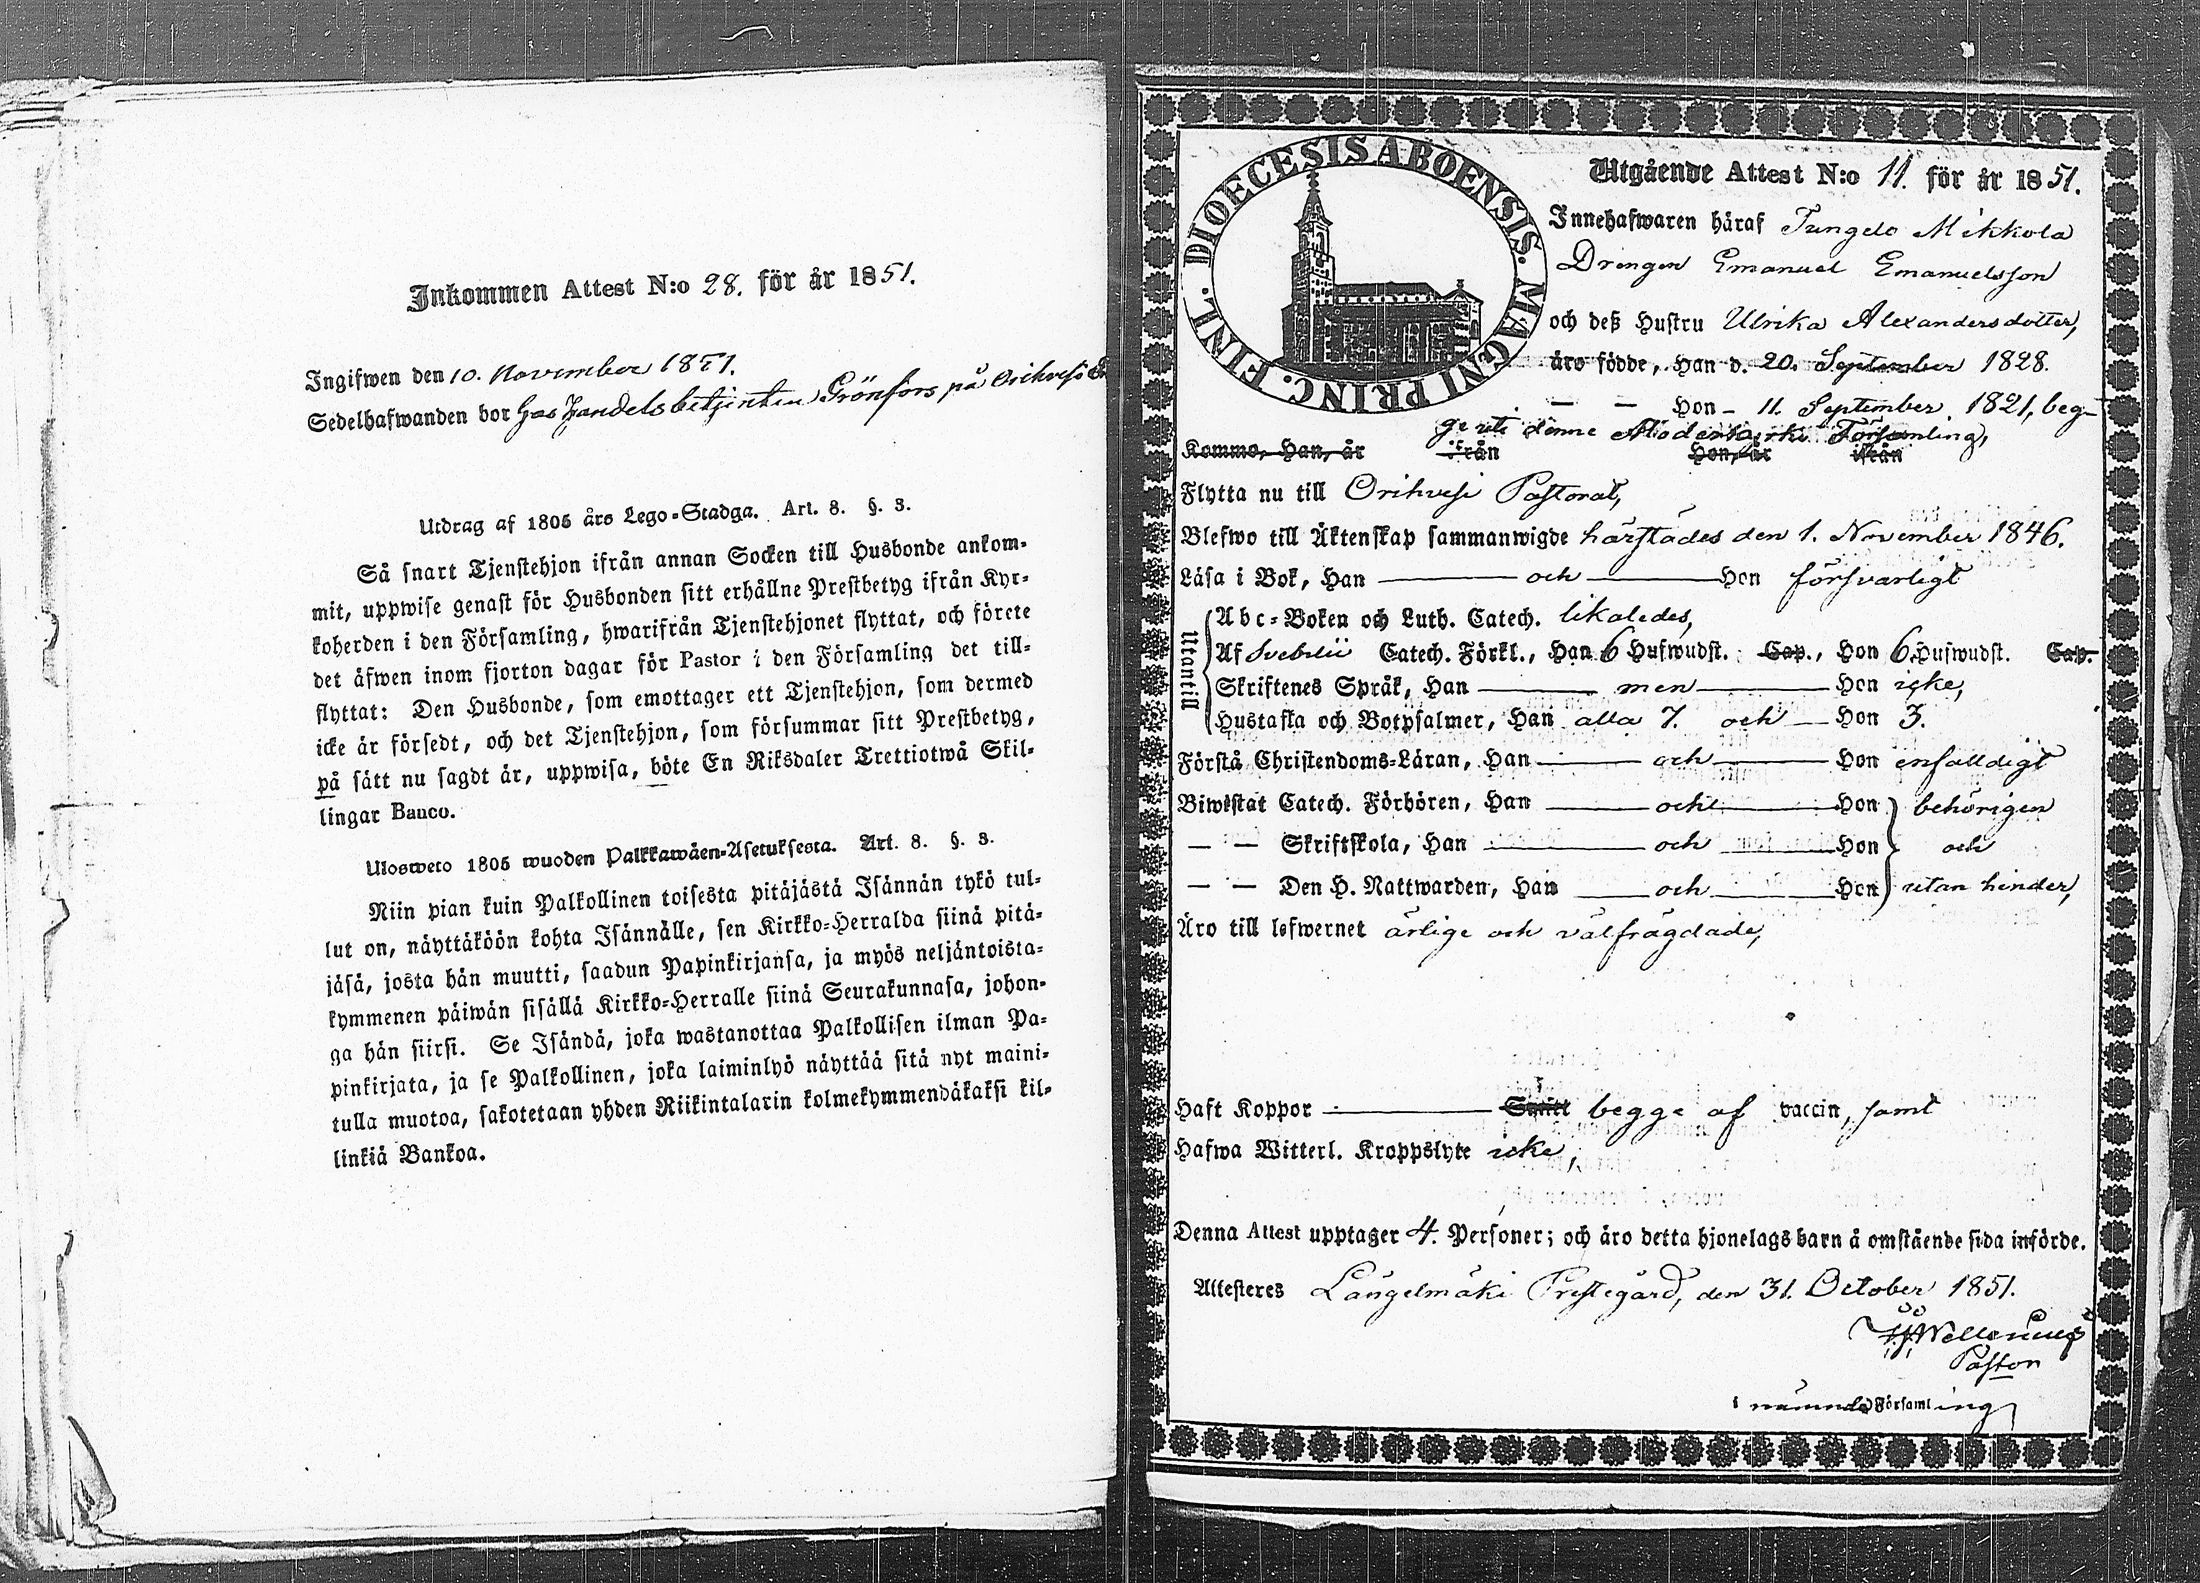 Inkommen Attest N:o 28. för år 1851.
Ingifwen den 10. November 1851.
Sedelhafwanden bor hos Handelsbetjenten Grönfors på Orihvesi
Utdrag af 1805 års Lego-Stadga. Art. 8. §. 3.
Så snart Tjenstehjon ifrån annan Socken till Husbonde ankom-
mit, uppwise genast för Husbonden sitt erhållne Prestbetyg ifrån Kyr-
koherden i den Församling, hwarifrån Tjenstehjonet flyttat, och förete
det äfwen inom fjorton dagar för Pastor i den Församling det till-
flyttat: Den Husbonde, som emottager ett Tjenstehjon, som dermed
icke är försedt, och det Tjenstehjon, som försummar sitt Prestbetyg,
på sätt nu sagdt är, uppwisa, böte En Riksdaler Trettiotwå Skil-
lingar Banco.
Ulosweto 1805 wuoden Palkkawäen-Asetuksesta. Art. 8. §. 3.
Niin pian kuin Palkollinen toisesta pitäjästä Isännän tykö tul-
lut on, näyttäköön kohta Isännälle, sen Kirkko-Herralda siinä pitä-
jäsä, josta hän muutti, saadun Papinkirjansa, ja myös neljäntoista-
kymmenen päiwän sisällä Kirkko-Herralle siinä Seurakunnasa, johon-
ga hän siirsi. Se Isändä, joka wastanottaa Palkollisen ilman Pa-
pinkirjata, ja se Palkollinen, joka laiminlyö näyttää sitä nyt maini-
tulla muotoa, sakotetaan yhden Riikintalarin kolmekymmendäkaksi kil-
linkiä Bankoa.
DIOECESIS ABOENSIS. MAGNI PRINC. FINL.
Utgående Attest N:o 11. för år 1851.
Innehafwaren häraf Tungelo Mikkola
Drengen Emanuel Emanuelsson
och deß Hustru Ulrika Alexandersdotter,
äro födde, Han d. 20. September 1828.
— — Hon - 11. September 1821, beg-
ge uti denne Moderkyrko Församling,
Komme, Han, är ifrån Hon, är ifrån
Flytta nu till Orihvesi Pastorat,
Blefwo till Äktenskap sammanwigde härstädes den 1. November 1846.
Läsa i Bok, Han — och — Hon försvarligt
Utantill
Abc-Boken och Luth. Catech. likaledes,
Af Svebelii Catech. Förkl., Han 6 Hufwudst. Cap., Hon 6 Hufwudst. Cap.
Skriftenes Språk, Han — men — Hon icke,
Hustafla och Botpsalmer, Han alla 7. och — Hon 3.
Förstå Christendoms-Läran, Han — och — Hon enfalldigt
Biwistat Catech. Förhören, Han — och — Hon behörigen
— — Skriftskola, Han — och — Hon och
— — Den H. Nattwarden, Han — och — Hon utan hinder,
Äro till lefwernet ärlige och välfrägdade,
Haft Koppor — begge af vaccin, samt
Hafwa Witterl. Kroppslyte icke,
Denna Attest upptager 4. Personer; och äro detta hjonelags barn å omstående sida införde.
Attesteres Längelmäki Prestegård, den 31. October 1851.
Pastor
i nämnde Församling